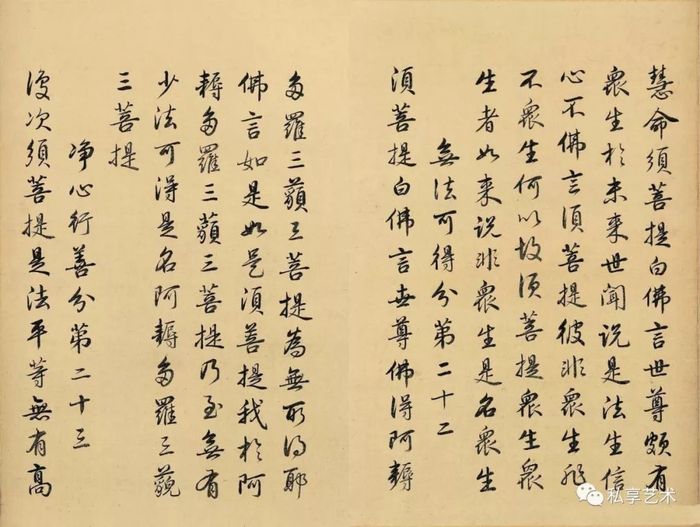 慧命須菩提白佛言世尊頗有
衆生於未来世聞説是法生信
心不佛言須菩提彼非衆生非
不衆生何以故須菩提衆生衆
生者如来説非衆生是名衆生
無法可得分第二十二
須菩提白佛言世尊佛得阿耨
多羅三藐三菩提為無所得耶
佛言如是如是須菩提我於阿
耨多羅三藐三菩提乃至無有
少法可得是名阿耨多羅三藐
三菩提
净心行善分第二十三
復次須菩提是法平等無有高
私享艺术